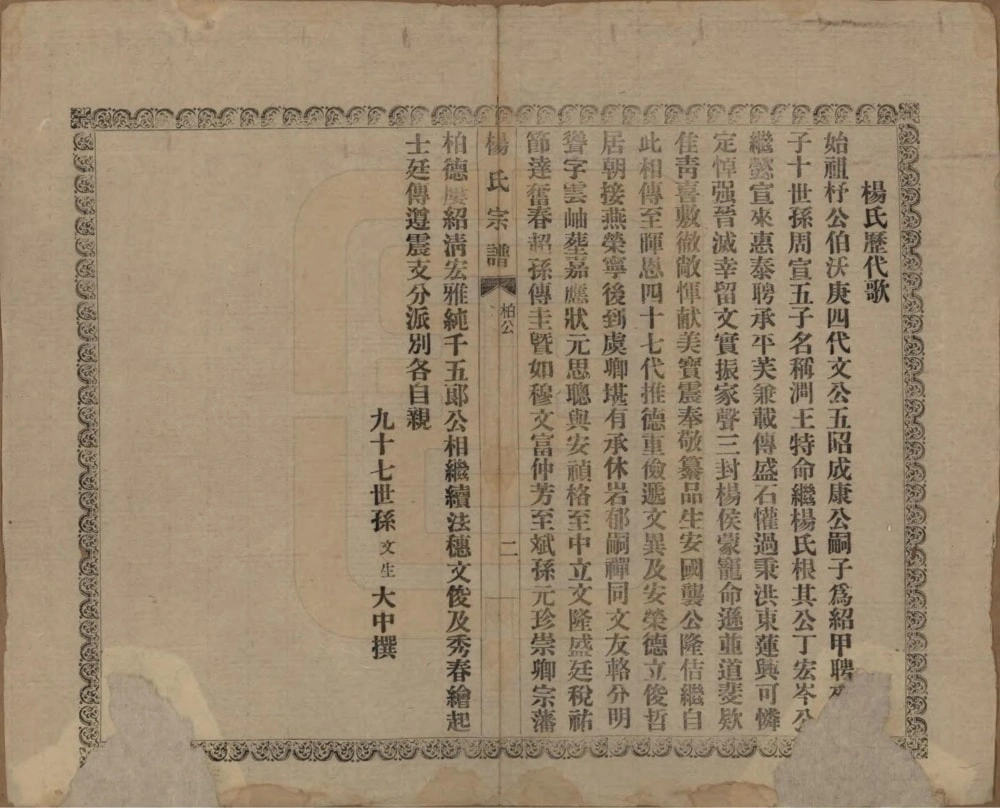 楊氏歷代歌
始祖杼公伯沃庚四代文公五昭成康公嗣子爲紹甲聘
子十世孫周宣五子名稱澗王特命繼楊氏根其公丁宏岑公
繼懿宣來惠泰聘承平芙兼載傳盛石懽過秉洪東蓮興可憐
定悼强晉滅幸留文實振家聲三封楊侯蒙寵命遜重道斐歟
佳靑喜敷敞惲献美寳震奉敬纂品生安國襲公隆佶繼自
此相傳至暉恩四十七代推德重儉遞文異及安榮德立俊哲
居朝接燕榮寧後到虞卿堪有承休岩郁嗣禪同文友輅分明
聳字雲岫塟嘉應狀元思聰與安禎格至中立文隆盛廷稅祐
節達奮春超孫傳主暨如穆文富仲芳至斌孫元珍崇卿宗藩
楊氏宗譜
柏公
二
柏德慶紹淸宏雅純千五郎公相繼續法穗文俊及秀春繪起
士廷傳遵震支分派別各自親
九十七世孫 文生 大中撰